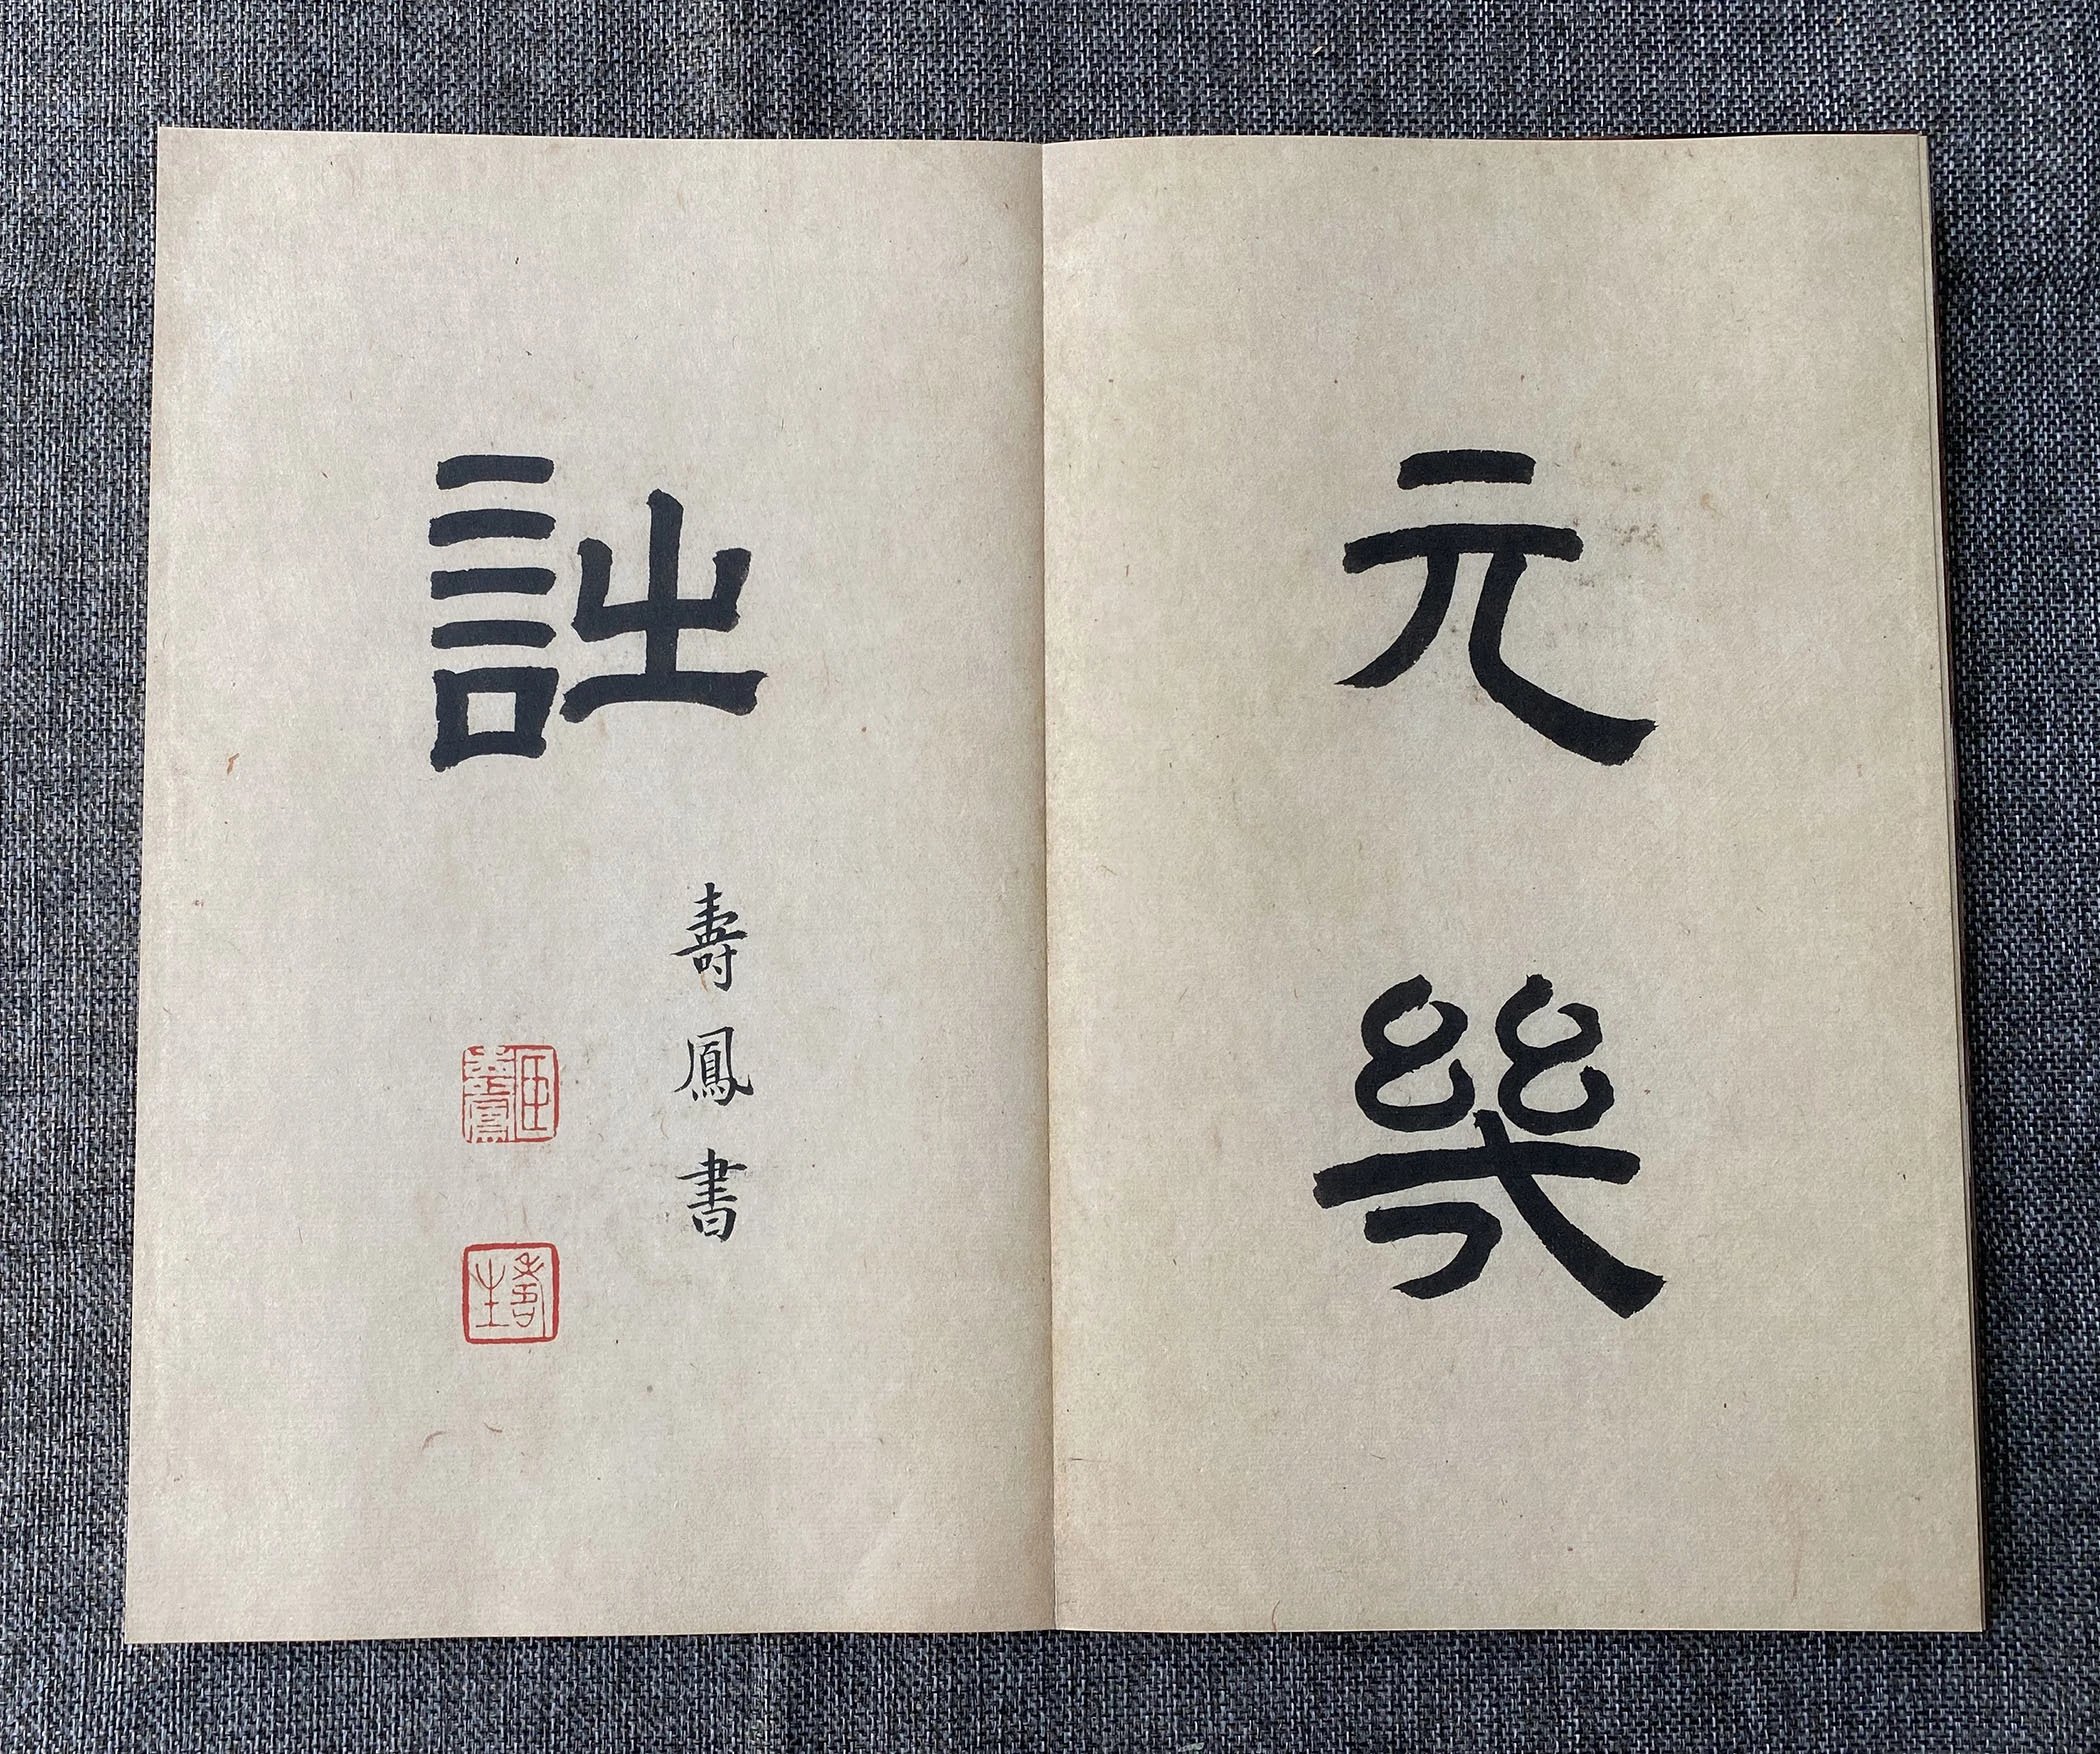 元幾
詩
壽鳳書